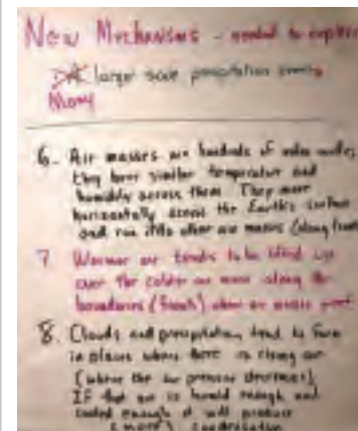 New Mechanisms - needed to explain
larger scale precipitation events
Many
6. Air masses are hundreds of miles wide,
they have similar temperature and
humidity across them. They move
horizontally across the Earth's surface
and run into other air masses (along fronts
7. Warmer air tends to be lifted up
over the colder air mass along the
boundaries (fronts) when air masses meet.
8. Clouds and precipitation tend to form
in places where there is rising air
(where the air pressure decreases).
IF that air is humid enough and
cooled enough it will produce
(more) condensation